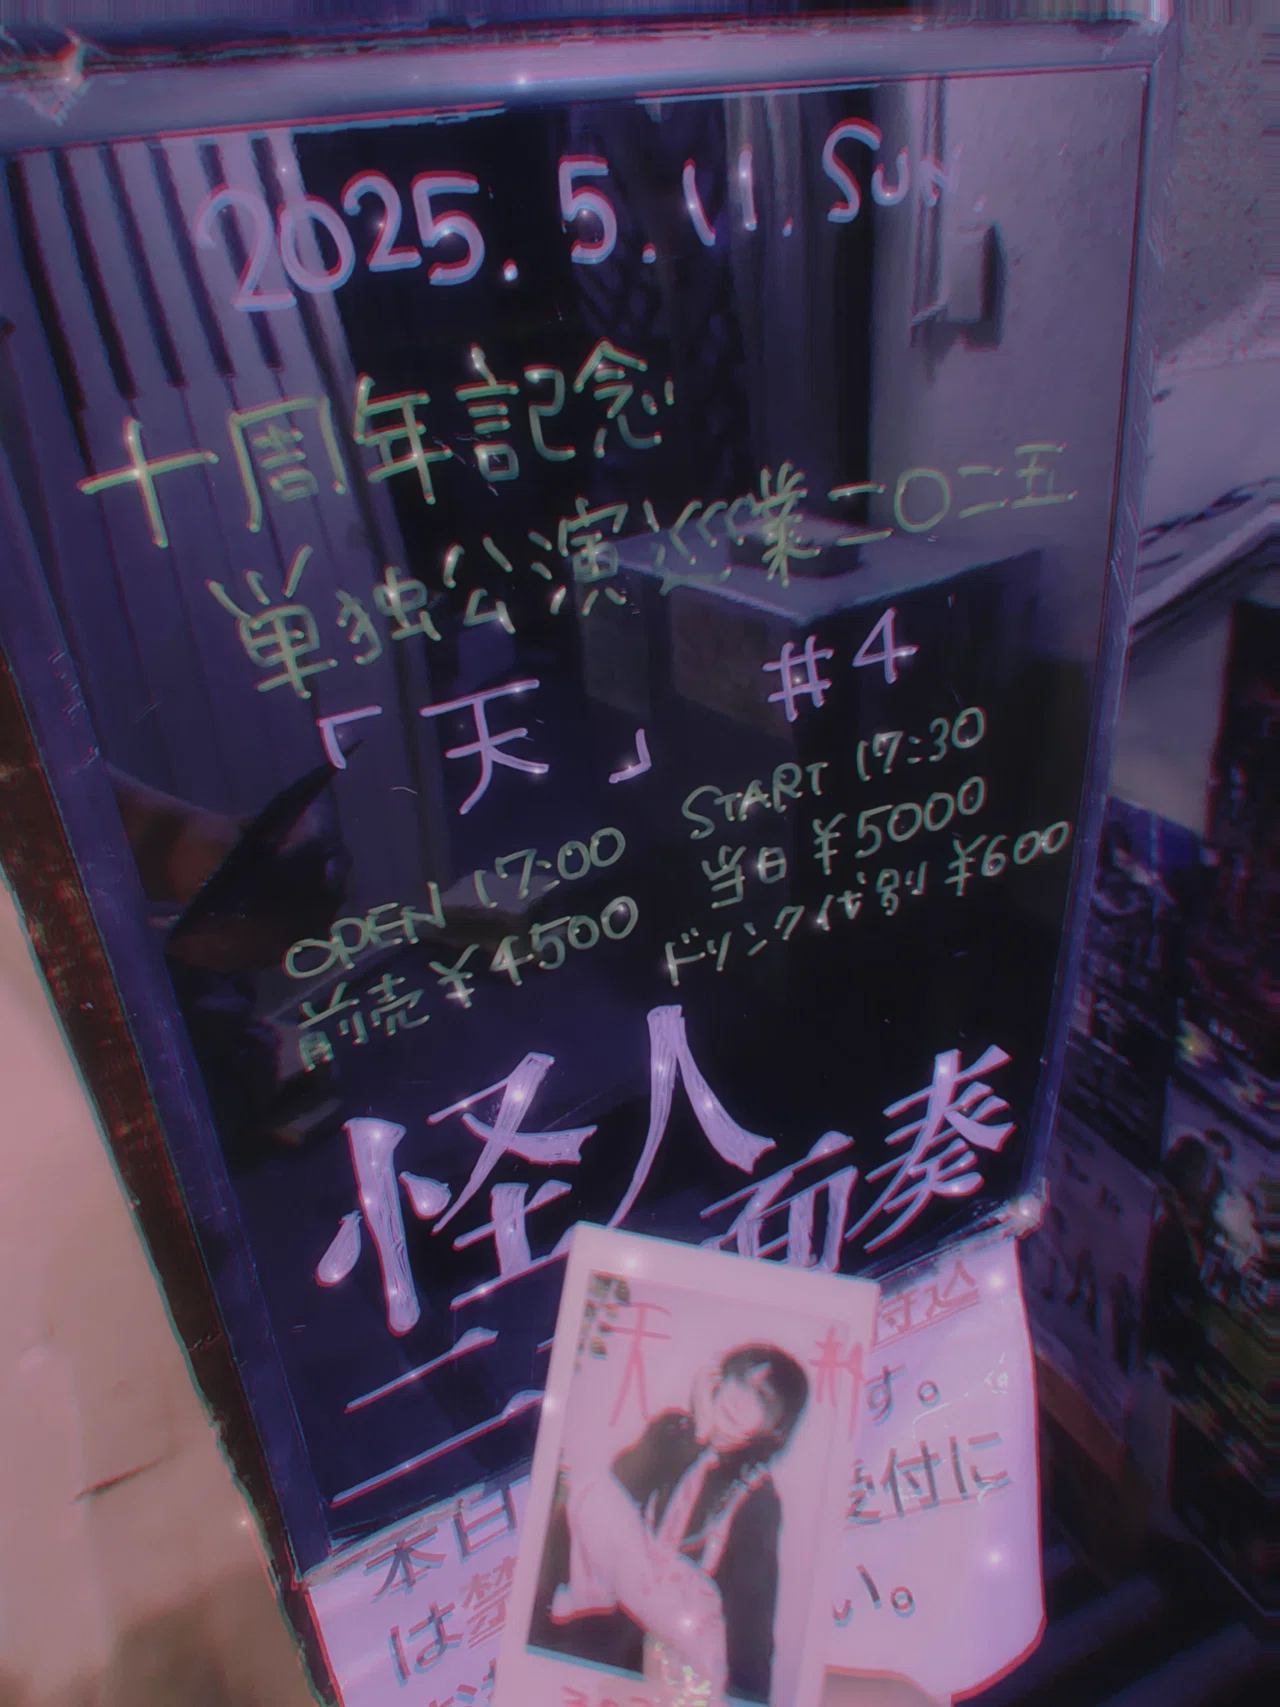 2025.5.11.Sun.
十周年記念
単独公演巡業二〇二五
「天」 #4
OPEN 17:00 START 17:30
前売¥4500 当日¥5000
ドリンク代別¥600
怪人二十面奏
本日
持込
は禁
す。
受付に
い。
天